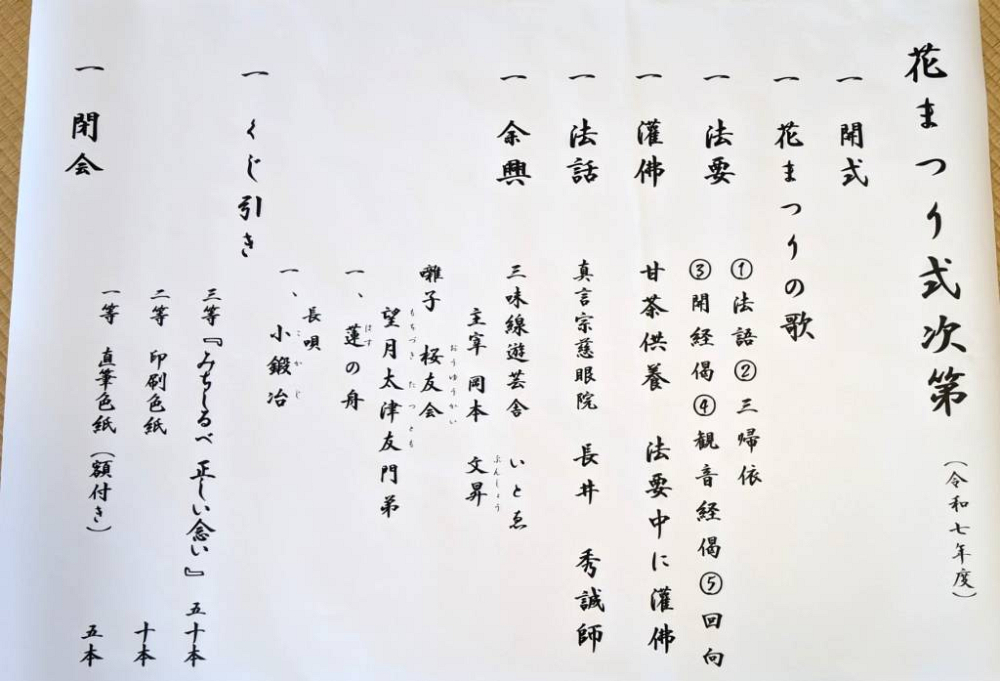 花まつり式次第
(令和七年度)
一 開式
一 花まつりの歌
一 法要
①法語②三帰依
③開経偈④観音経偈⑤回向
一 灌佛 甘茶供養 法要中に灌佛
一 法話 真言宗慈眼院 長井 秀誠師
一 余興 三味線遊芸舎 いとゑ
主宰 岡本 文昇
ぶんしょう
囃子 桜友会
おうゆうかい
望月太津友門弟
もちづき たつとも
一、蓮の舟
はす
長唄
一、小鍛冶
こかじ
一 くじ引き
三等『みちしるべ 正しい念い』 五十本
二等 印刷色紙 十本
一等 直筆色紙(額付き) 五本
一 閉会